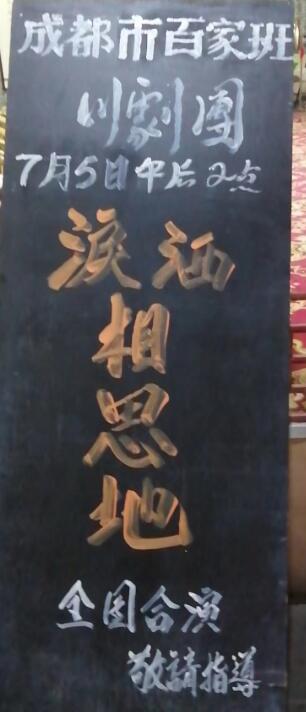 成都市百家班
川劇團
7月5日午后2点
淚洒
相
思
地
全团合演
敬請指導